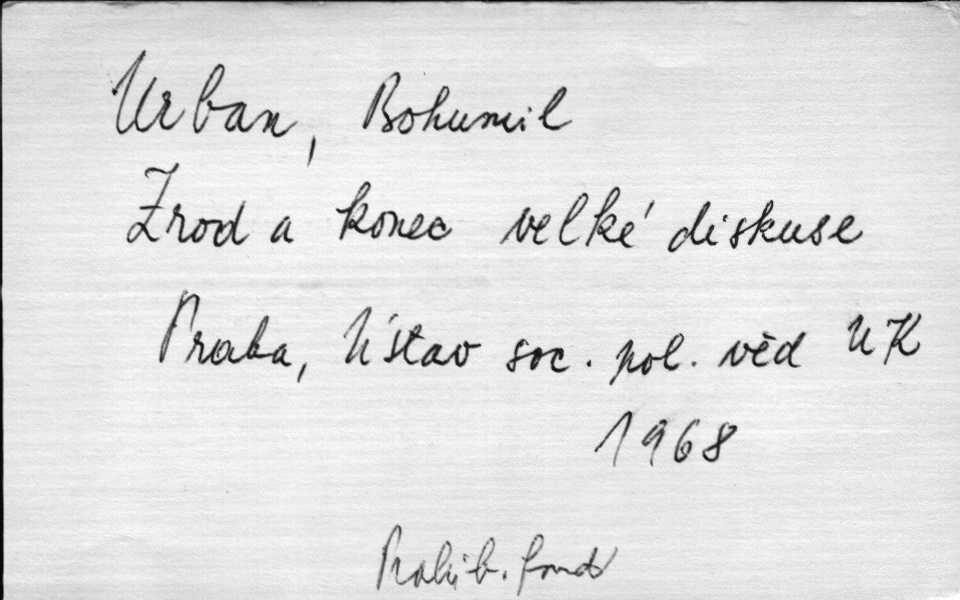 Urban, Bohumil
Zrod a konec velké diskuse
Praha, Ústav soc. pol. věd UK
1968
Prohib. fond